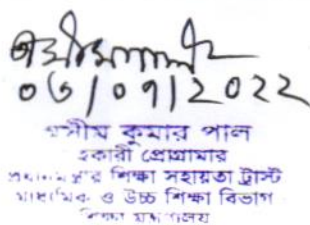 ০৬/০৭/২০২২
অসীম কুমার পাল
সহকারী প্রোগ্রামার
প্রধানমন্ত্রীর শিক্ষা সহায়তা ট্রাস্ট
মাধ্যমিক ও উচ্চ শিক্ষা বিভাগ
শিক্ষা মন্ত্রণালয়